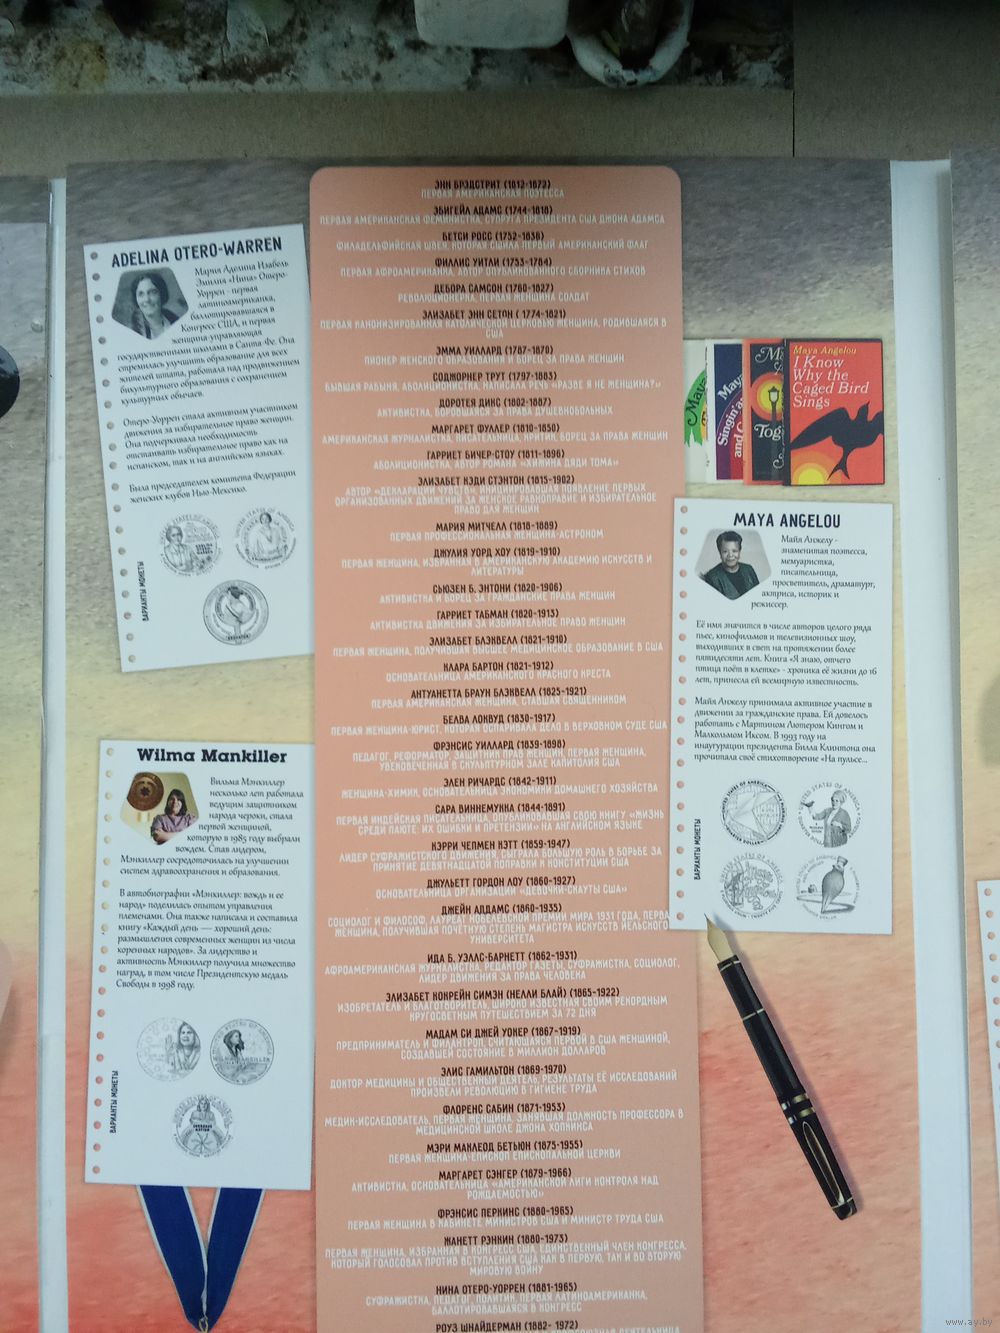 ADELINA OTERO-WARREN
Мария Аделина Изабель
Эмилия «Нина» Отеро-
Уоррен - первая
латиноамериканка,
баллотировавшаяся в
Конгресс США, и первая
женщина-управляющая
государственными школами в Санта-Фе. Она
стремилась улучшить образование для всех
жителей штата, работала над продвижением
бикультурного образования с сохранением
культурных обычаев.
Отеро-Уоррен стала активным участником
движения за избирательное право женщин.
Она подчеркивала необходимость
отстаивать избирательное право как на
испанском, так и на английском языках.
Была председателем комитета Федерации
женских клубов Нью-Мексико.
ВАРИАНТЫ МОНЕТЫ
Wilma Mankiller
Вильма Мэнкиллер
несколько лет работала
ведущим защитником
народа чероки, стала
первой женщиной,
которую в 1985 году выбрали
вождем. Став лидером,
Мэнкиллер сосредоточилась на улучшении
систем здравоохранения и образования.
В автобиографии «Мэнкиллер: вождь и ее
народ» поделилась опытом управления
племенами. Она также написала и составила
книгу «Каждый день — хороший день:
размышления современных женщин из числа
коренных народов». За лидерство и
активность Мэнкиллер получила множество
наград, в том числе Президентскую медаль
Свободы в 1998 году.
ВАРИАНТЫ МОНЕТЫ
ЭНН БРЭДСТРИТ (1612-1672)
ПЕРВАЯ АМЕРИКАНСКАЯ ПОЭТЕССА
ЭБИГЕЙЛ АДАМС (1744-1818)
ПЕРВАЯ АМЕРИКАНСКАЯ ФЕМИНИСТКА, СУПРУГА ПРЕЗИДЕНТА США ДЖОНА АДАМСА
БЕТСИ РОСС (1752-1836)
ФИЛАДЕЛЬФИЙСКАЯ ШВЕЯ, КОТОРАЯ СШИЛА ПЕРВЫЙ АМЕРИКАНСКИЙ ФЛАГ
ФИЛЛИС УИТЛИ (1753-1784)
ПЕРВАЯ АФРОАМЕРИКАНКА, АВТОР ОПУБЛИКОВАННОГО СБОРНИКА СТИХОВ
ДЕБОРА САМСОН (1760-1827)
РЕВОЛЮЦИОНЕРКА, ПЕРВАЯ ЖЕНЩИНА СОЛДАТ
ЭЛИЗАБЕТ ЭНН СЕТОН ( 1774-1821)
ПЕРВАЯ КАНОНИЗИРОВАННАЯ КАТОЛИЧЕСКОЙ ЦЕРКОВЬЮ ЖЕНЩИНА, РОДИВШАЯСЯ В
США
ЭММА УИЛЛАРД (1787-1870)
ПИОНЕР ЖЕНСКОГО ОБРАЗОВАНИЯ И БОРЕЦ ЗА ПРАВА ЖЕНЩИН
СОДЖОРНЕР ТРУТ (1797-1883)
БЫВШАЯ РАБЫНЯ, АБОЛИЦИОНИСТКА, НАПИСАЛА РЕЧЬ «РАЗВЕ Я НЕ ЖЕНЩИНА?»
ДОРОТЕЯ ДИКС (1802-1887)
АКТИВИСТКА, БОРОВШАЯСЯ ЗА ПРАВА ДУШЕВНОБОЛЬНЫХ
МАРГАРЕТ ФУЛЛЕР (1810-1850)
АМЕРИКАНСКАЯ ЖУРНАЛИСТКА, ПИСАТЕЛЬНИЦА, КРИТИК, БОРЕЦ ЗА ПРАВА ЖЕНЩИН
ГАРРИЕТ БИЧЕР-СТОУ (1811-1896)
АБОЛИЦИОНИСТКА, АВТОР РОМАНА «ХИЖИНА ДЯДИ ТОМА»
ЭЛИЗАБЕТ КЭДИ СТЭНТОН (1815-1902)
АВТОР «ДЕКЛАРАЦИИ ЧУВСТВ», ИНИЦИИРОВАВШАЯ ПОЯВЛЕНИЕ ПЕРВЫХ
ОРГАНИЗОВАННЫХ ДВИЖЕНИЙ ЗА ЖЕНСКОЕ РАВНОПРАВИЕ И ИЗБИРАТЕЛЬНОЕ
ПРАВО ДЛЯ ЖЕНЩИН
МАРИЯ МИТЧЕЛЛ (1818-1889)
ПЕРВАЯ ПРОФЕССИОНАЛЬНАЯ ЖЕНЩИНА-АСТРОНОМ
ДЖУЛИЯ УОРД ХОУ (1819-1910)
ПЕРВАЯ ЖЕНЩИНА, ИЗБРАННАЯ В АМЕРИКАНСКУЮ АКАДЕМИЮ ИСКУССТВ И
ЛИТЕРАТУРЫ
СЬЮЗЕН Б. ЭНТОНИ (1820-1906)
АКТИВИСТКА И БОРЕЦ ЗА ГРАЖДАНСКИЕ ПРАВА ЖЕНЩИН
ГАРРИЕТ ТАБМАН (1820-1913)
АКТИВИСТКА ДВИЖЕНИЯ ЗА ИЗБИРАТЕЛЬНОЕ ПРАВО ЖЕНЩИН
ЭЛИЗАБЕТ БЛЭКВЕЛЛ (1821-1910)
ПЕРВАЯ ЖЕНЩИНА, ПОЛУЧИВШАЯ ВЫСШЕЕ МЕДИЦИНСКОЕ ОБРАЗОВАНИЕ В США
КЛАРА БАРТОН (1821-1912)
ОСНОВАТЕЛЬНИЦА АМЕРИКАНСКОГО КРАСНОГО КРЕСТА
АНТУАНЕТТА БРАУН БЛЭКВЕЛЛ (1825-1921)
ПЕРВАЯ АМЕРИКАНСКАЯ ЖЕНЩИНА, СТАВШАЯ СВЯЩЕННИКОМ
БЕЛВА ЛОКВУД (1830-1917)
ПЕРВАЯ ЖЕНЩИНА-ЮРИСТ, КОТОРАЯ ОСПАРИВАЛА ДЕЛО В ВЕРХОВНОМ СУДЕ США
ФРЭНСИС УИЛЛАРД (1839-1898)
ПЕДАГОГ, РЕФОРМАТОР, ЗАЩИТНИК ПРАВ ЖЕНЩИН, ПЕРВАЯ ЖЕНЩИНА,
УВЕКОВЕЧЕННАЯ В СКУЛЬПТУРНОМ ЗАЛЕ КАПИТОЛИЯ США
ЭЛЕН РИЧАРДС (1842-1911)
ЖЕНЩИНА-ХИМИК, ОСНОВАТЕЛЬНИЦА ЭКОНОМИКИ ДОМАШНЕГО ХОЗЯЙСТВА
САРА ВИННЕМУККА (1844-1891)
ПЕРВАЯ ИНДЕЙСКАЯ ПИСАТЕЛЬНИЦА, ОПУБЛИКОВАВШАЯ СВОЮ КНИГУ «ЖИЗНЬ
СРЕДИ ПАЮТЕ: ИХ ОШИБКИ И ПРЕТЕНЗИИ» НА АНГЛИЙСКОМ ЯЗЫКЕ
КЭРРИ ЧЕПМЕН КЭТТ (1859-1947)
ЛИДЕР СУФРАЖИСТСКОГО ДВИЖЕНИЯ, СЫГРАЛА БОЛЬШУЮ РОЛЬ В БОРЬБЕ ЗА
ПРИНЯТИЕ ДЕВЯТНАДЦАТОЙ ПОПРАВКИ К КОНСТИТУЦИИ США
ДЖУЛЬЕТТ ГОРДОН ЛОУ (1860-1927)
ОСНОВАТЕЛЬНИЦА ОРГАНИЗАЦИИ «ДЕВОЧКИ-СКАУТЫ США»
ДЖЕЙН АДДАМС (1860-1935)
СОЦИОЛОГ И ФИЛОСОФ, ЛАУРЕАТ НОБЕЛЕВСКОЙ ПРЕМИИ МИРА 1931 ГОДА, ПЕРВАЯ
ЖЕНЩИНА, ПОЛУЧИВШАЯ ПОЧЁТНУЮ СТЕПЕНЬ МАГИСТРА ИСКУССТВ ЙЕЛЬСКОГО
УНИВЕРСИТЕТА
ИДА Б. УЭЛЛС-БАРНЕТТ (1862-1931)
АФРОАМЕРИКАНСКАЯ ЖУРНАЛИСТКА, РЕДАКТОР ГАЗЕТЫ, СУФРАЖИСТКА, СОЦИОЛОГ,
ЛИДЕР ДВИЖЕНИЯ ЗА ПРАВА ЧЕЛОВЕКА
ЭЛИЗАБЕТ КОКРЕЙН СИМЭН (НЕЛЛИ БЛАЙ) (1865-1922)
ИЗОБРЕТАТЕЛЬ И БЛАГОТВОРИТЕЛЬ, ШИРОКО ИЗВЕСТНАЯ СВОИМ РЕКОРДНЫМ
КРУГОСВЕТНЫМ ПУТЕШЕСТВИЕМ ЗА 72 ДНЯ
МАДАМ СИ ДЖЕЙ УОКЕР (1867-1919)
ПРЕДПРИНИМАТЕЛЬ И ФИЛАНТРОП, СЧИТАЮЩАЯСЯ ПЕРВОЙ В США ЖЕНЩИНОЙ,
СОЗДАВШЕЙ СОСТОЯНИЕ В МИЛЛИОН ДОЛЛАРОВ
ЭЛИС ГАМИЛЬТОН (1869-1970)
ДОКТОР МЕДИЦИНЫ И ОБЩЕСТВЕННЫЙ ДЕЯТЕЛЬ, РЕЗУЛЬТАТЫ ЕЁ ИССЛЕДОВАНИЙ
ПРОИЗВЕЛИ РЕВОЛЮЦИЮ В ГИГИЕНЕ ТРУДА
ФЛОРЕНС САБИН (1871-1953)
МЕДИК-ИССЛЕДОВАТЕЛЬ, ПЕРВАЯ ЖЕНЩИНА, ЗАНЯВШАЯ ДОЛЖНОСТЬ ПРОФЕССОРА В
МЕДИЦИНСКОЙ ШКОЛЕ ДЖОНА ХОПКИНСА
МЭРИ МАКЛЕОД БЕТЬЮН (1875-1955)
ПЕРВАЯ ЖЕНЩИНА-ЕПИСКОП ЕПИСКОПАЛЬНОЙ ЦЕРКВИ
МАРГАРЕТ СЭНГЕР (1879-1966)
АКТИВИСТКА, ОСНОВАТЕЛЬНИЦА «АМЕРИКАНСКОЙ ЛИГИ КОНТРОЛЯ НАД
РОЖДАЕМОСТЬЮ»
ФРЭНСИС ПЕРКИНС (1880-1965)
ПЕРВАЯ ЖЕНЩИНА В КАБИНЕТЕ МИНИСТРОВ США И МИНИСТР ТРУДА США
ЖАНЕТТ РЭНКИН (1880-1973)
ПЕРВАЯ ЖЕНЩИНА, ИЗБРАННАЯ В КОНГРЕСС США, ЕДИНСТВЕННЫЙ ЧЛЕН КОНГРЕССА,
КОТОРЫЙ ГОЛОСОВАЛ ПРОТИВ ВСТУПЛЕНИЯ США КАК В ПЕРВУЮ, ТАК И ВО ВТОРУЮ
МИРОВУЮ ВОЙНУ
НИНА ОТЕРО-УОРРЕН (1881-1965)
СУФРАЖИСТКА, ПЕДАГОГ, ПОЛИТИК, ПЕРВАЯ ЛАТИНОАМЕРИКАНКА,
БАЛЛОТИРОВАВШАЯСЯ В КОНГРЕСС
РОУЗ ШНАЙДЕРМАН (1882- 1972)
Maya Angelou
I Know
Why the
Caged Bird
Sings
MAYA ANGELOU
Майя Анжелу -
знаменитая поэтесса,
мемуаристка,
писательница,
просветитель, драматург,
актриса, историк и
режиссер.
Её имя значится в числе авторов целого ряда
пьес, кинофильмов и телевизионных шоу,
выходивших в свет на протяжении более
пятидесяти лет. Книга «Я знаю, отчего
птица поёт в клетке» - хроника её жизни до 16
лет, принесла ей всемирную известность.
Майя Анжелу принимала активное участие в
движении за гражданские права. Ей довелось
работать с Мартином Лютером Кингом и
Малкольмом Иксом. В 1993 году на
инаугурации президента Билла Клинтона она
прочитала своё стихотворение «На пульсе...
ВАРИАНТЫ МОНЕТЫ
www.ay.by